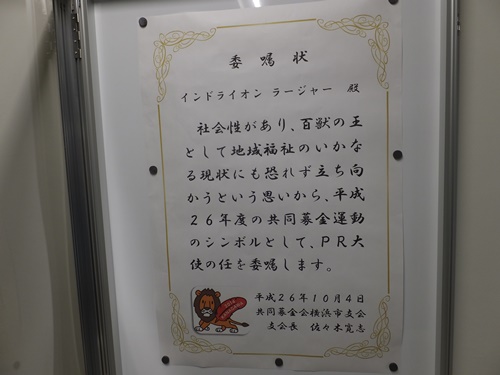 委嘱状
インドライオン ラージャー 殿
社会性があり、百獣の王
として地域福祉のいかな
る現状にも恐れず立ち向
かうという思いから、平成
26年度の共同募金運動
のシンボルとして、PR大
使の任を委嘱します。
平成26年10月4日
共同募金会横浜市支会
支会長 佐々木寛志